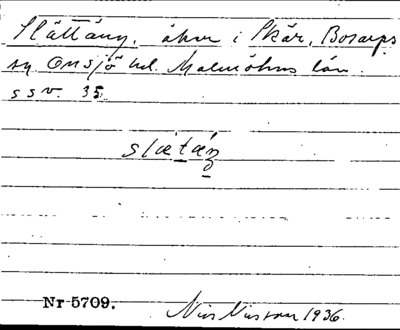 Slättäng, åker i Skär, Bosarps
sn Onsjö hd. Malmöhus län.
s s v. 35.
slætæŋ
Nr 5709.
Nils Nilsson 1936.